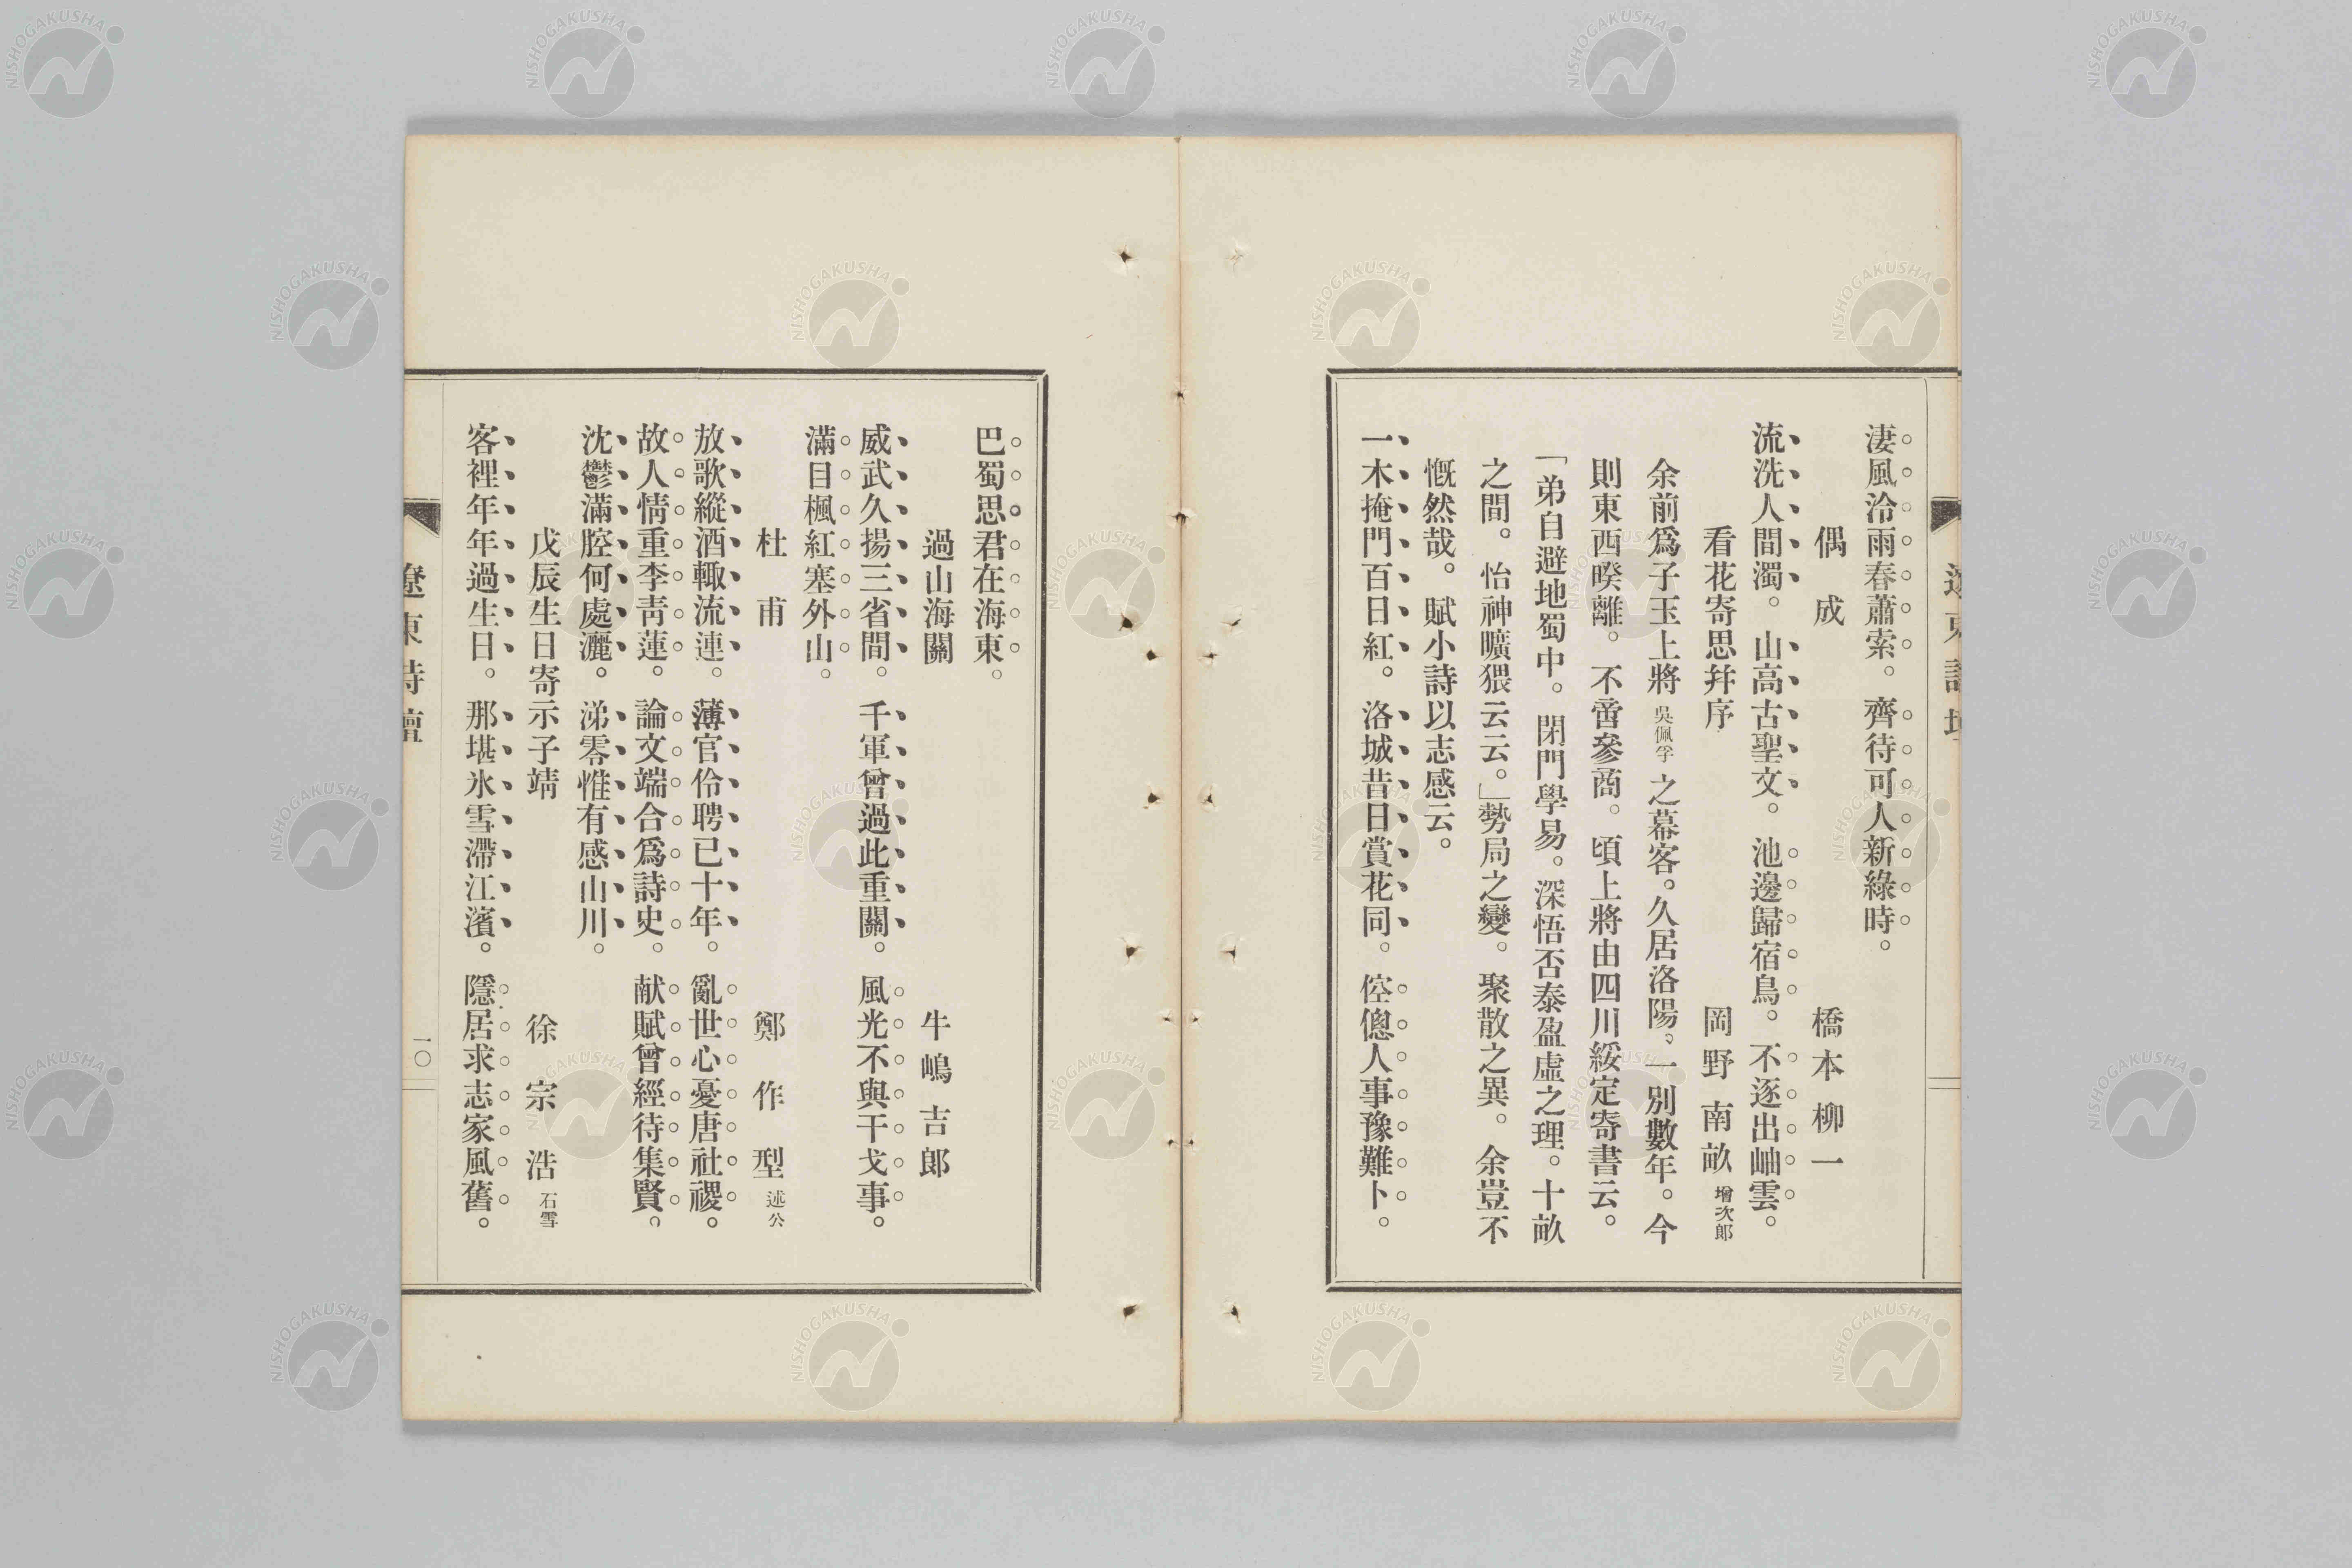 遼東詩壇
淒風泠雨春蕭索。齊待可人新綠時。
偶成　橋本柳一
流洗人間濁。山高古聖文。池邊歸宿鳥。不逐出岫雲。
看花寄思幷序　岡野南畝增次郎
余前爲子玉上將吳佩孚之幕客。久居洛陽。一別數年。今
則東西暌離。不啻參商。頃上將由四川綏定寄書云。
「弟自避地蜀中。閉門學易。深悟否泰盈虛之理。十畝
之間。怡神曠猥云云。」勢局之變。聚散之異。余豈不
慨然哉。賦小詩以志感云。
一木掩門百日紅。洛城昔日賞花同。倥傯人事豫難卜。
巴蜀思君在海東。
過山海關　牛嶋吉郎
威武久揚三省間。千軍曾過此重關。風光不與干戈事。
滿目楓紅塞外山。
杜甫　鄭作型述公
放歌縱酒輙流連。薄官伶聘已十年。亂世心憂唐社禝。
故人情重李靑蓮。論文端合爲詩史。献賦曾經待集賢。
沈鬱滿腔何處灑。涕零惟有感山川。
戊辰生日寄示子靖　徐宗浩石雪
客裡年年過生日。那堪氷雪滯江濱。隱居求志家風舊。
遼東詩壇
一〇
NISHOGAKUSHA